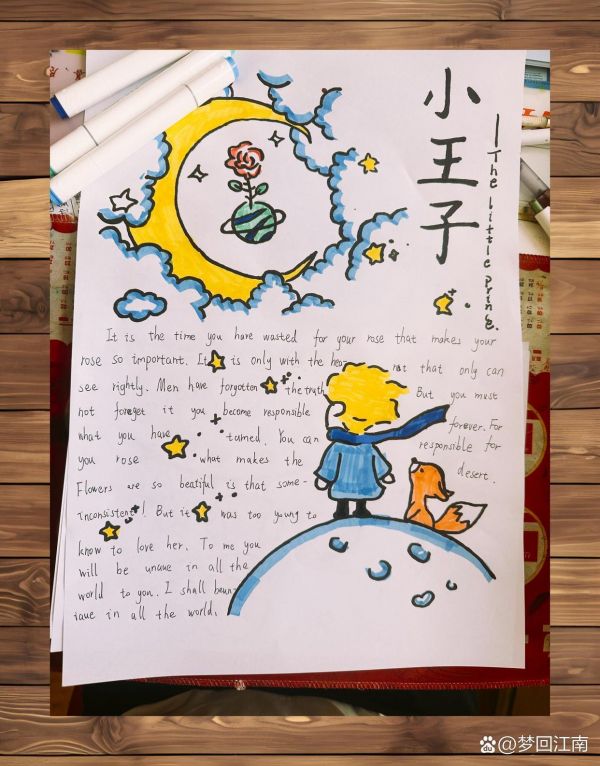 小王子
—The Little prince.
It is the time you have wasted for your rose that makes your
rose so important. It is only with the hea rt that only can
see rightly. Men have forgotten the truth But you must
not forget it you become responsible forever. For
what you have turned. You can responsible for
you rose what makes the desert.
Flowers are so beatiful is that some-
inconsistent! But it was too young to
know to love her. To me you
will be unaue in all the
world to you. I shall beun
iaue in all the world.
@梦回江南